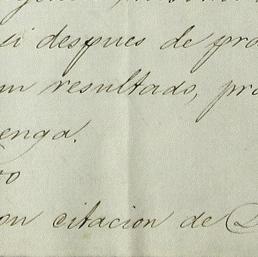 despues de pro
resultado, pro
enga.
on citacion de D